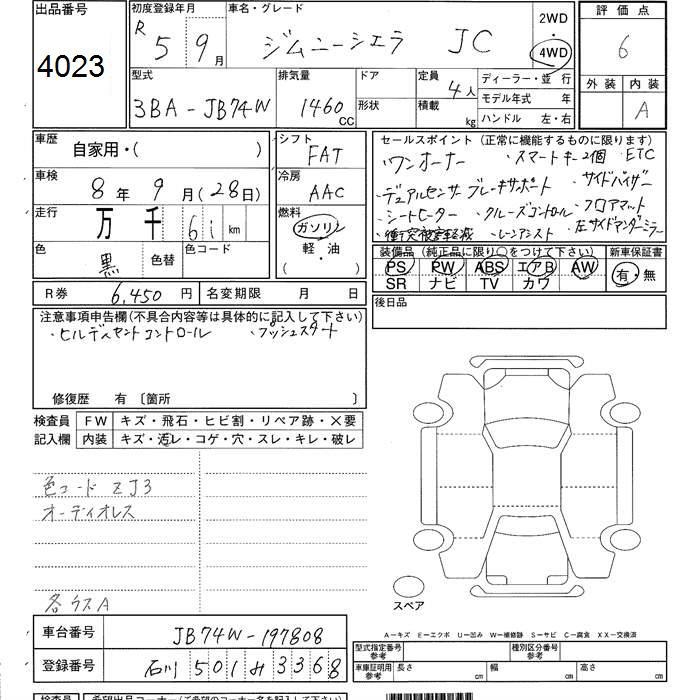 出品番号
4023
初度登録年月 R 5 9月
車名・グレード
ジムニーシエラ JC
2WD・4WD
評価点
6
外装 内装
A
型式
3BA-JB74W
排気量
1460 CC
ドア
形状
定員 4人
積載 kg
ディーラー・並行
モデル年式 年
ハンドル 左・右
車歴 自家用・( )
シフト FAT
車検 8年 9月(28日)
冷房 AAC
走行 万 千 6 i km
燃料
ガソリン
軽・油
( )
色 黒 色替 色コード
R券 6,450円 名変期限 月 日
セールスポイント (正常に機能するものに限ります)
・ワンオーナー ・スマートキー2個 ETC
・デュアルセンサーブレーキサポート ・サイドバイザー
・シートヒーター ・クルーズコントロール ・フロアマット
・衝突被害軽減 ・レーンアシスト ・左サイドアンダーミラー
装備品 (純正品に限り○をつけて下さい) 新車保証書
PS PW ABS エアB AW 有・無
SR ナビ TV カワ
後日品
注意事項申告欄(不具合内容等は具体的に記入して下さい)
・ヒルディセントコントロール ・プッシュスタート
修復歴 有 〔箇所 〕
検査員記入欄
FW キズ・飛石・ヒビ割・リペア跡・×要
内装 キズ・汚レ・コゲ・穴・スレ・キレ・破レ
色コード ZJ3
オーディオレス
各ラスA
スペア
A―キズ E―エクボ U―凹み W―補修跡 S―サビ C―腐食 XX―交換済
車台番号 JB74W-197808
登録番号 石川 501 3368
型式指定番号 参考 種別区分番号 参考
車庫証明用 参考 長さ cm 幅 cm 高さ cm
検査員 希望出品コーナー(ご希望のコーナー名を記入下さい)